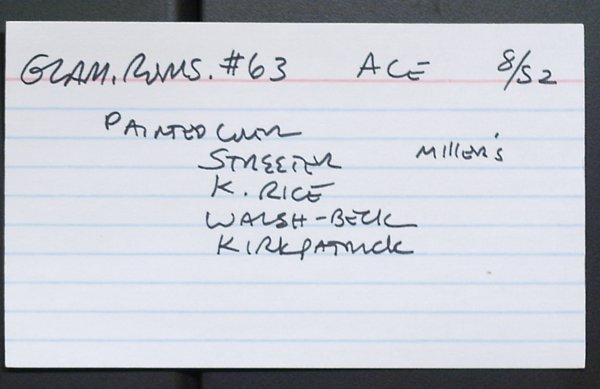 GLAM. ROMS. #63 ACE 8/52
PAINTED COVER
STREETER MILLER'S
K. RICE
WALSH-BECK
KIRKPATRICK